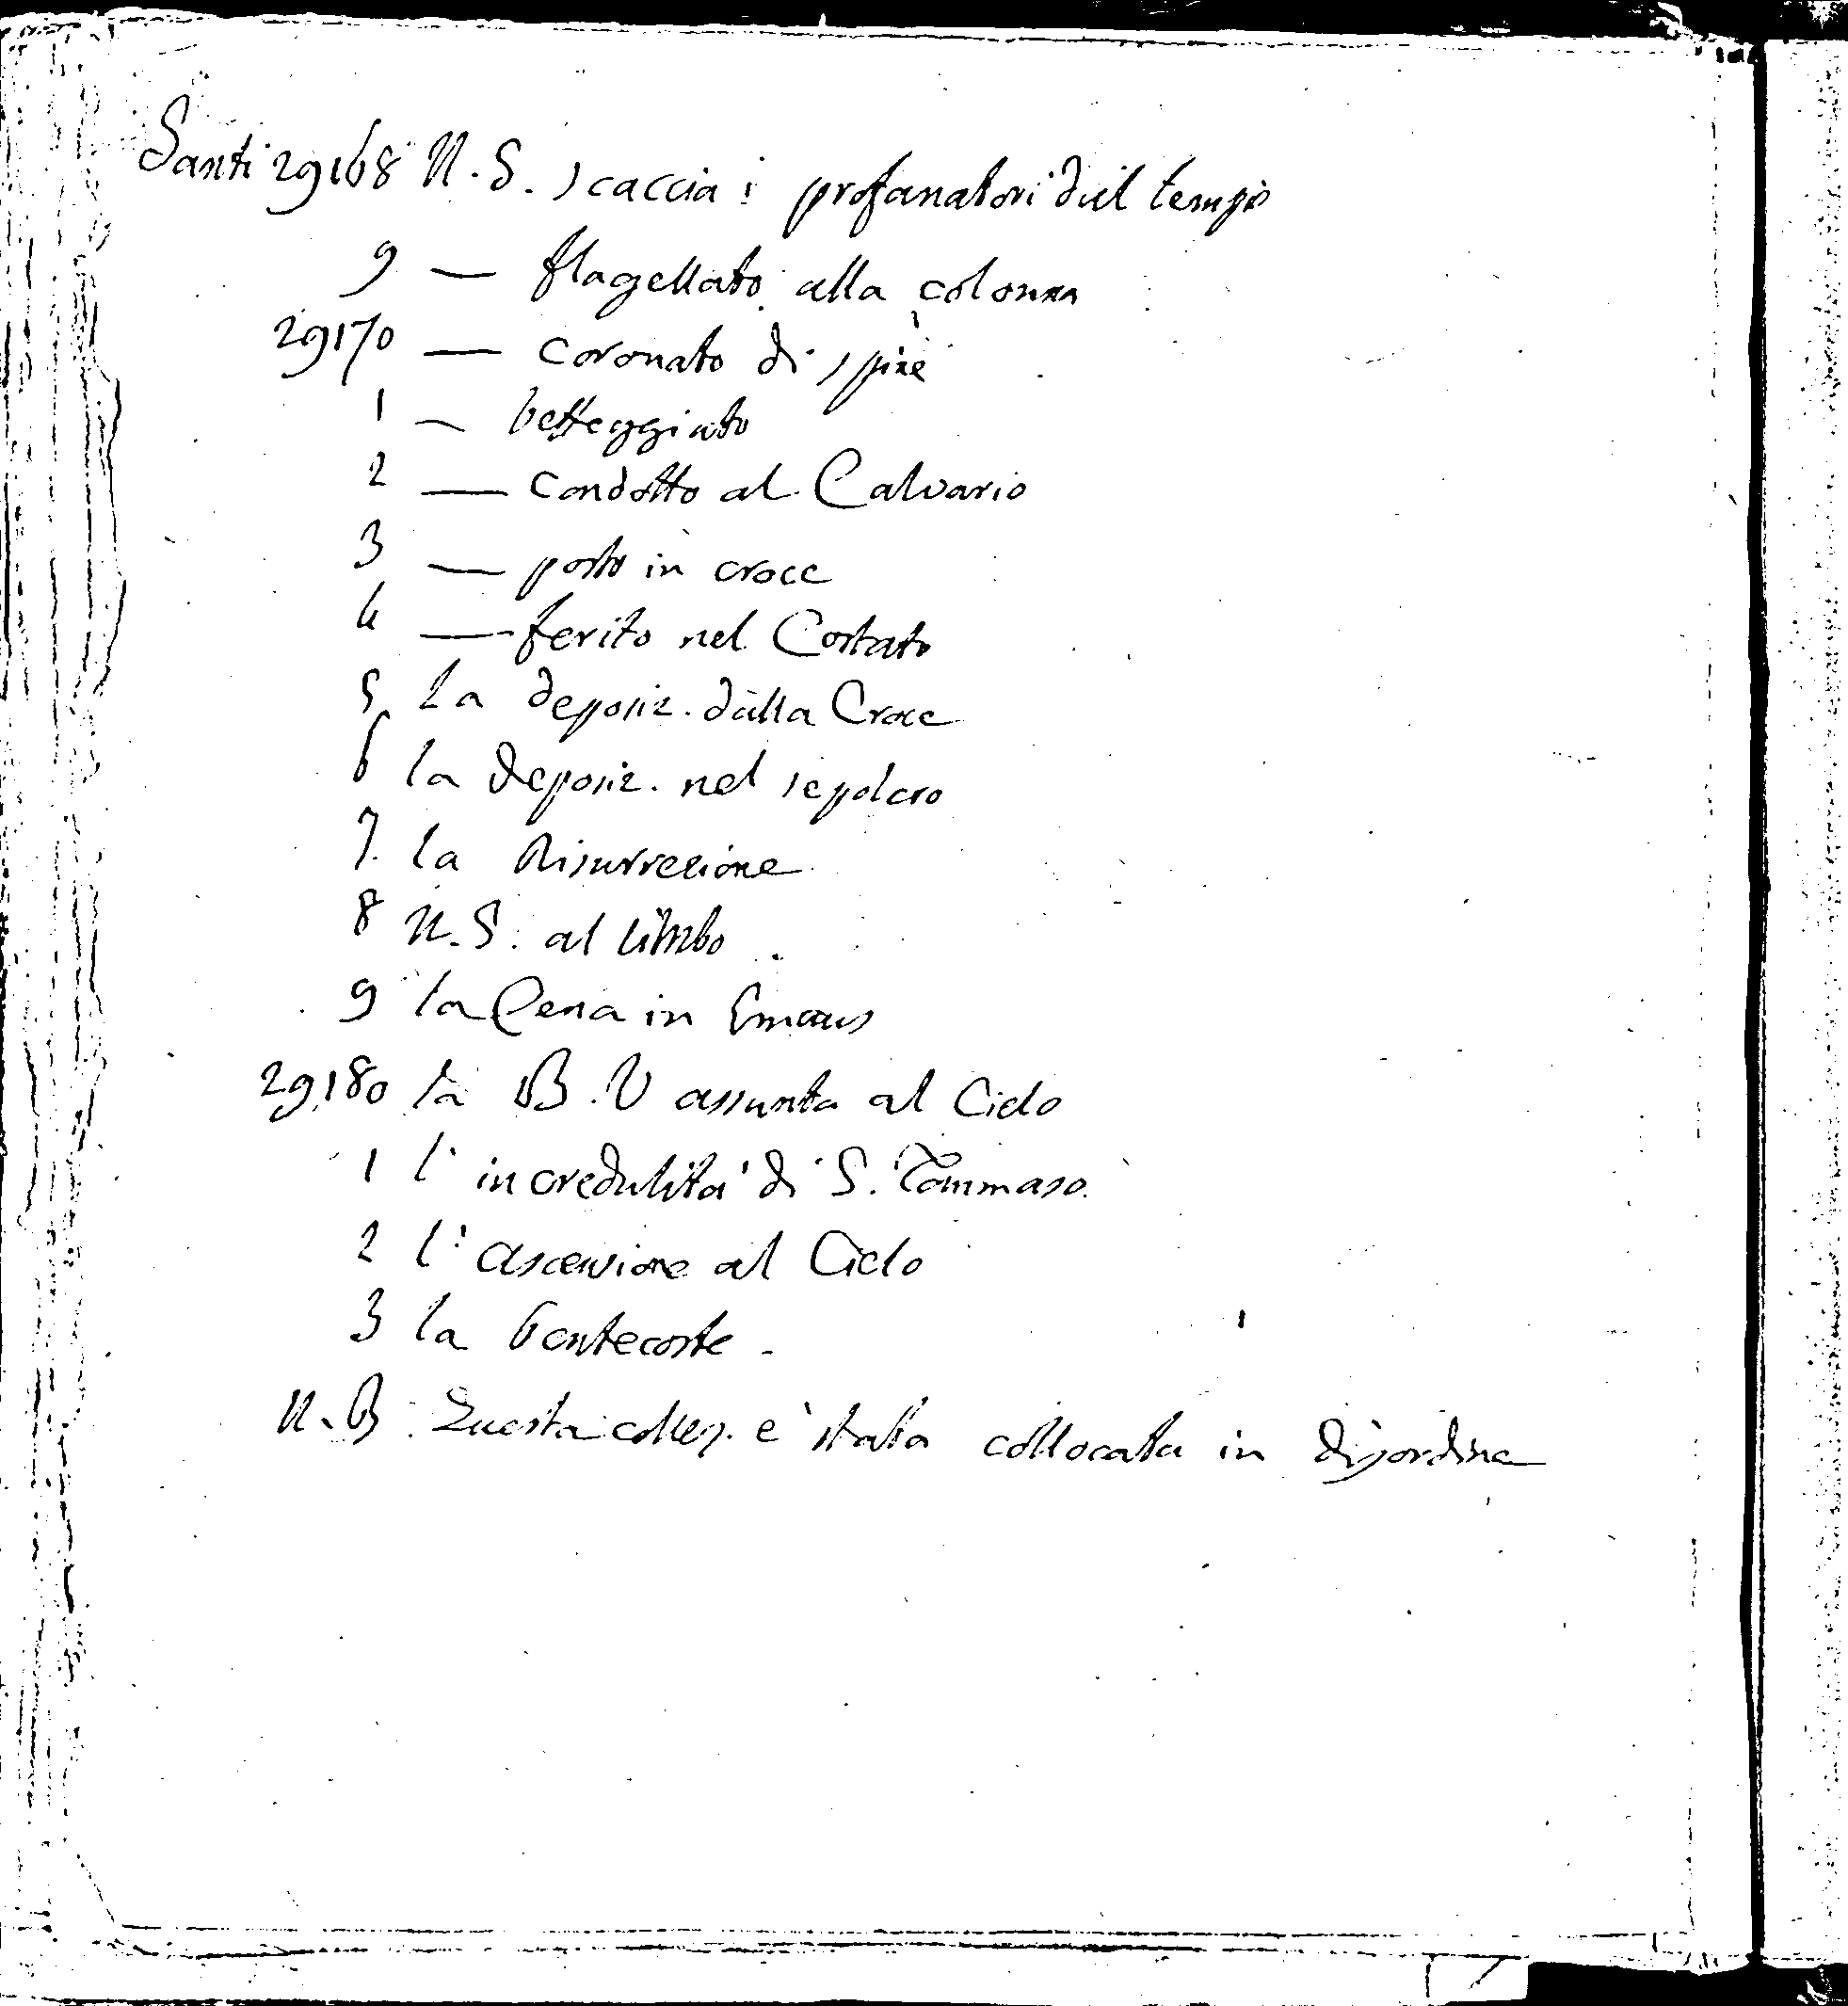 Santi 29168 N.S. scaccia i profanatori del tempio
9 — flagellato alla colonna
29170 — coronato di spine
1 — beffeggiato
2 — condotto al Calvario
3 — posto in croce
4 — ferito nel Costato
5 La deposiz. dalla Croce
6 la deposiz. nel sepolcro
7 la Risurrezione
8 N.S. al limbo
9 la Cena in Emaus
29180 la B.V assunta al Cielo
1 l'incredulità di S. Tommaso
2 l'ascensione al Cielo
3 la Pentecoste
N.B. Questa collez. è stata collocata in disordine